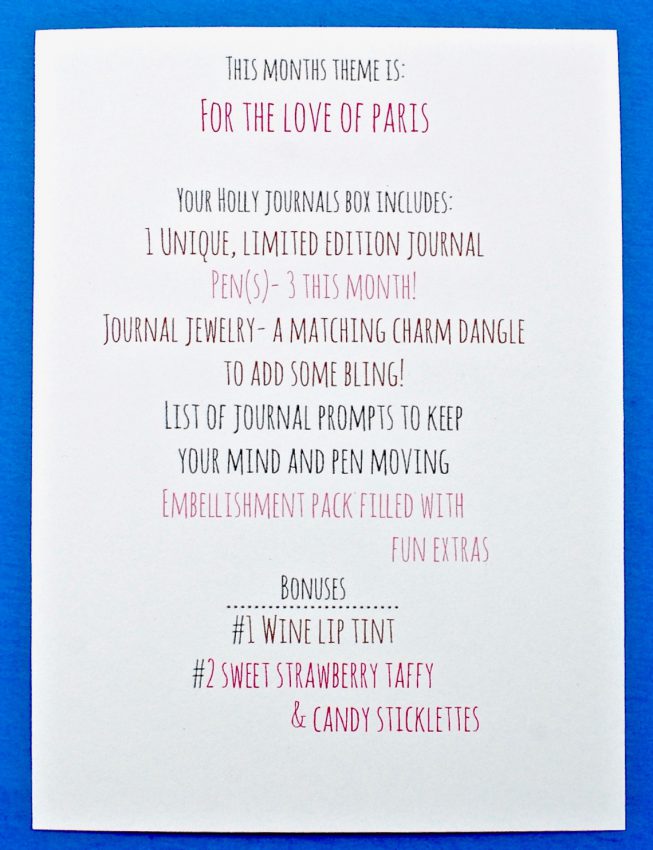 This months theme is:
For the love of Paris
Your Holly Journals box includes:
1 Unique, limited edition journal
Pen(s)- 3 this month!
Journal jewelry- a matching charm dangle
to add some bling!
List of journal prompts to keep
your mind and pen moving
Embellishment pack filled with
fun extras
Bonuses
#1 Wine lip tint
#2 sweet strawberry taffy
& candy sticklettes